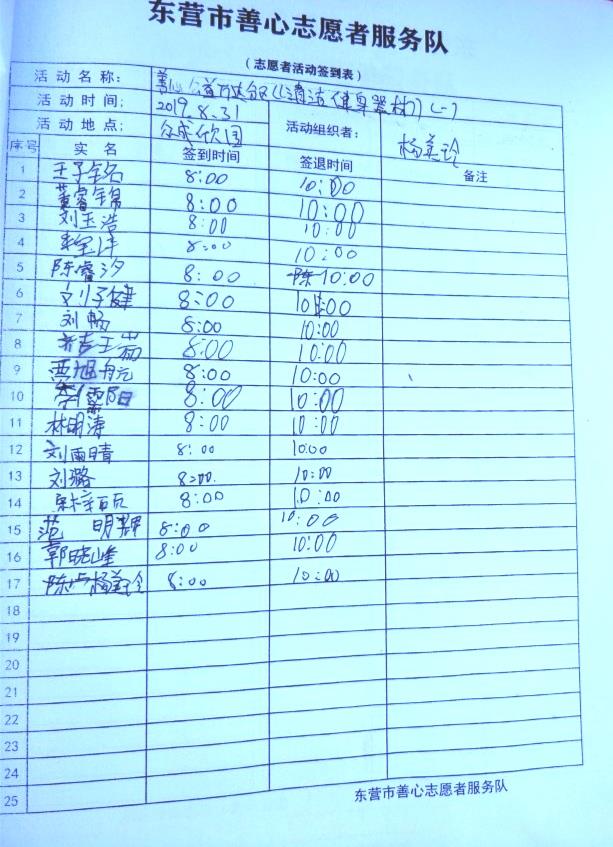 东营市善心志愿者服务队
(志愿者活动签到表)
活动名称: 善心公益 清洁健身器材
活动时间: 2019.8.31
活动地点: 众成欣园 活动组织者: 杨美玲
序号 实名 签到时间 签退时间 备注
1 王子铭 8:00 10:00
2 董睿锦 8:00 10:00
3 刘玉浩 8:00 10:00
4 8:00 10:00
5 陈睿汐 8:00 10:00
6 刘子健 8:00 10:00
7 刘畅 8:00 10:00
8 8:00 10:00
9 贾旭 8:00 10:00
10 8:00 10:00
11 林明涛 8:00 10:00
12 刘雨晴 8:00 10:00
13 刘璐 8:00 10:00
14 8:00 10:00
15 范明辉 8:00 10:00
16 郭晓峰 8:00 10:00
17 杨美玲 8:00 10:00
18
19
20
21
22
23
24
25
东营市善心志愿者服务队